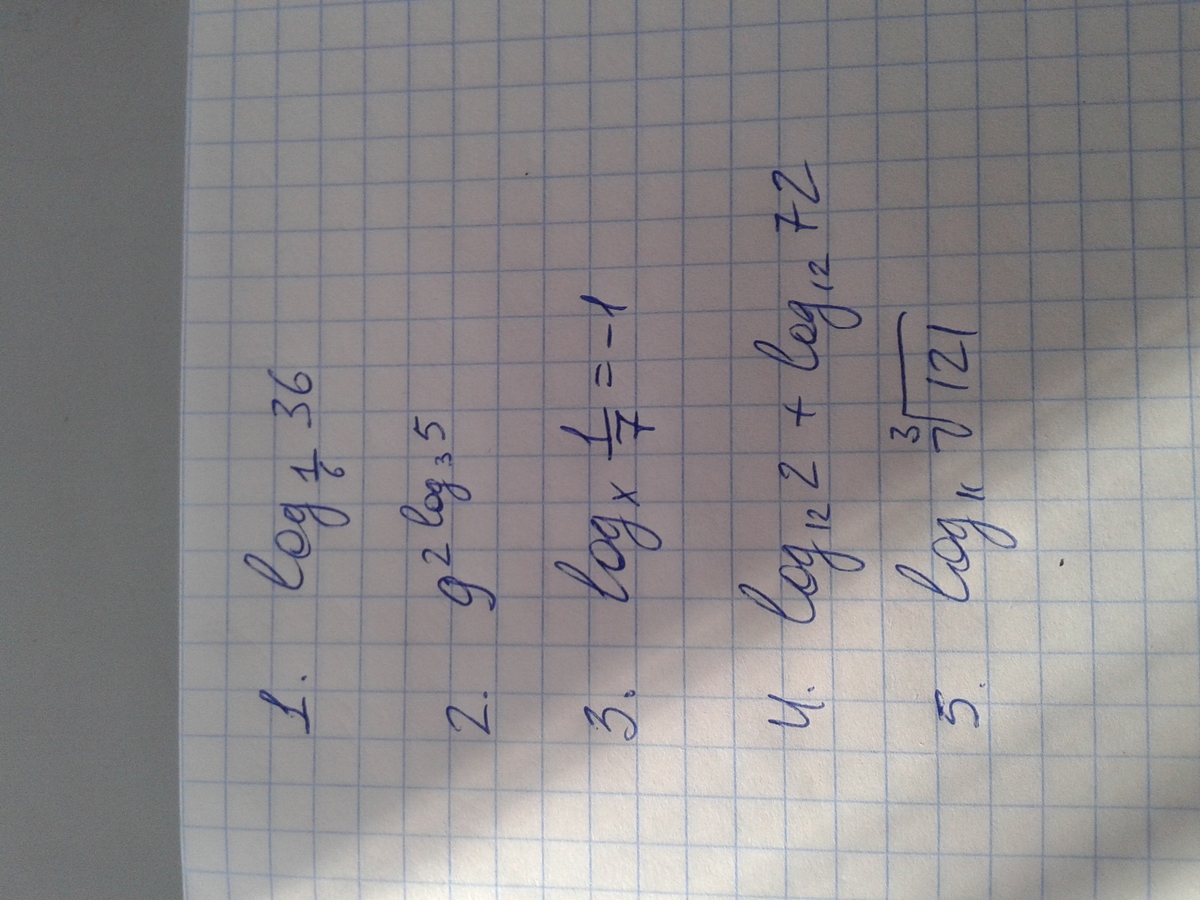 1. log_{1/6} 36
2. 9^{2 log_3 5}
3. log_x 1/7 = -1
4. log_{12} 2 + log_{12} 72
5. log_{11} ∛121